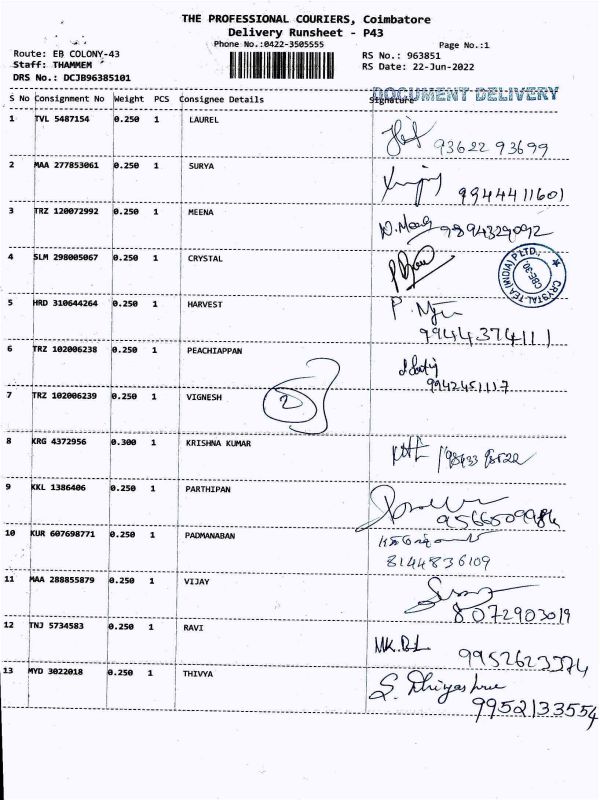 THE PROFESSIONAL COURIERS, Coimbatore
Delivery Runsheet - P43
Phone No.:0422-3505555
Page No.:1
Route: EB COLONY-43
RS No.: 963851
Staff: THAMMEM
RS Date: 22-Jun-2022
DRS No.: DCJB96385101
DOCUMENT DELIVERY
S No Consignment No Weight PCS Consignee Details Signature
1 TVL 5487154 0.250 1 LAUREL
93622 93699
2 MAA 277853061 0.250 1 SURYA
9944411601
3 TRZ 120072992 0.250 1 MEENA
9894329092
4 SLM 298005067 0.250 1 CRYSTAL
CRYSTAL TEA (INDIA) P LTD., CBE-30
5 HRD 310644264 0.250 1 HARVEST
9944437411
6 TRZ 102006238 0.250 1 PEACHIAPPAN
9942451117
7 TRZ 102006239 0.250 1 VIGNESH
2
8 KRG 4372956 0.300 1 KRISHNA KUMAR
9 KKL 1386406 0.250 1 PARTHIPAN
9566509984
10 KUR 607698771 0.250 1 PADMANABAN
8144836109
11 MAA 288855879 0.250 1 VIJAY
8072903019
12 TNJ 5734583 0.250 1 RAVI
9952623374
13 MYD 3022018 0.250 1 THIVYA
9952133554